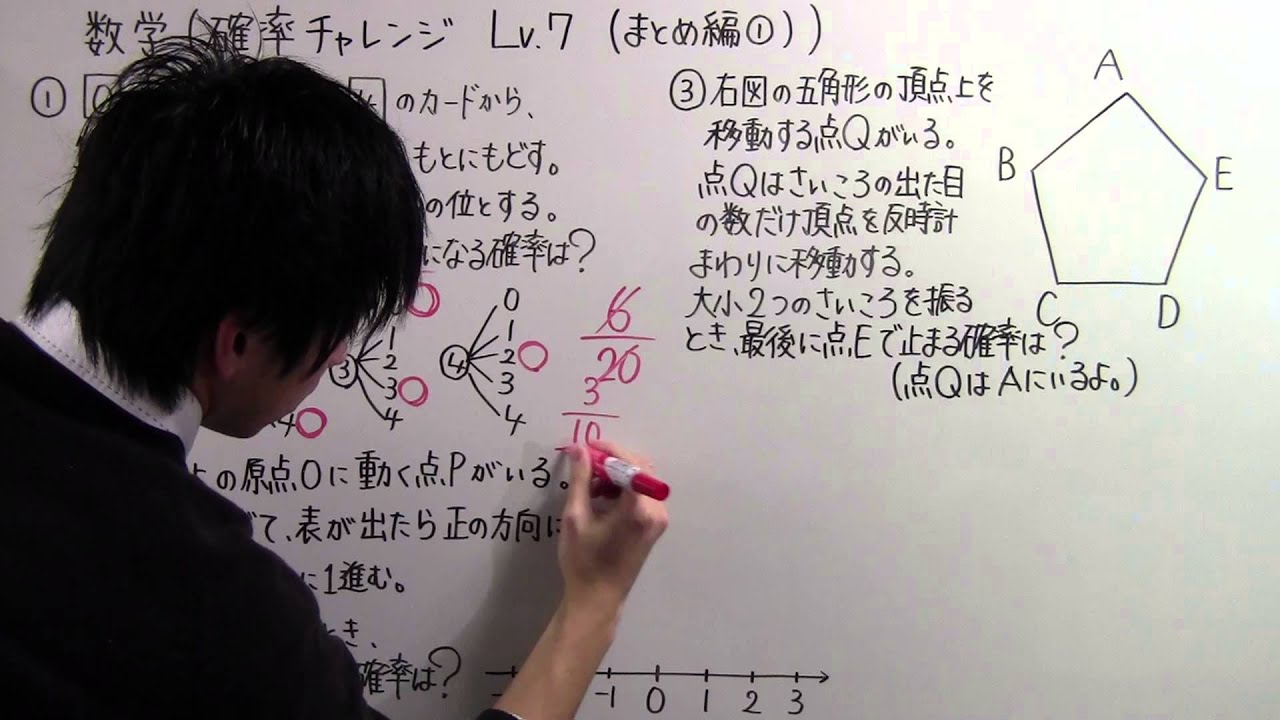 数学(確率チャレンジ Lv.7 (まとめ編①))
① 0 4 のカードから、
もとにもどす。
の位とする。
になる確率は?
1
3 2
3
4
4
0
4 1
2
3
4
6
20
3
10
の原点Oに動く点Pがいる。
て、表が出たら正の方向に
に1進む。
とき、
確率は?
-1 0 1 2 3
③右図の五角形の頂点上を
移動する点Qがいる。
点Qはさいころの出た目
の数だけ頂点を反時計
まわりに移動する。
大小2つのさいころを振る
とき、最後に点Eで止まる確率は?
(点QはAにいるよ。)
A
B
E
C
D